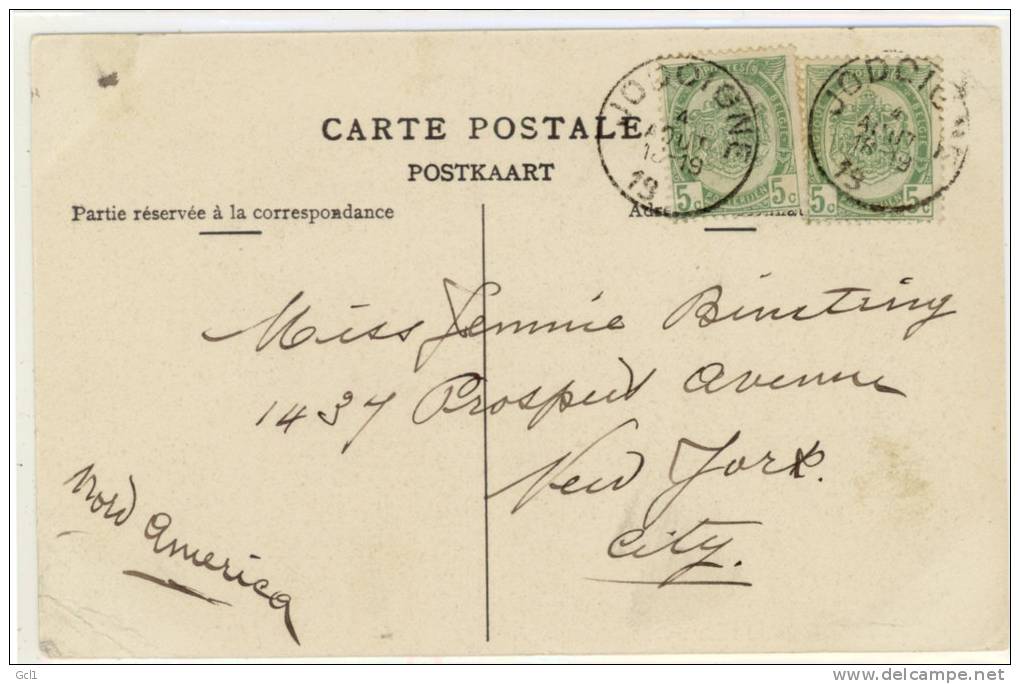 CARTE POSTALE
POSTKAART
Partie réservée à la correspondance
JODOIGNE
4
AOUT
19
5c 5c
JODOIGNE
4
AOUT
19
5c 5c
Miss Jennie Binstring
1437 Prospect Avenue
New York
City.
Nord America
Gcl1
www.delcampe.net